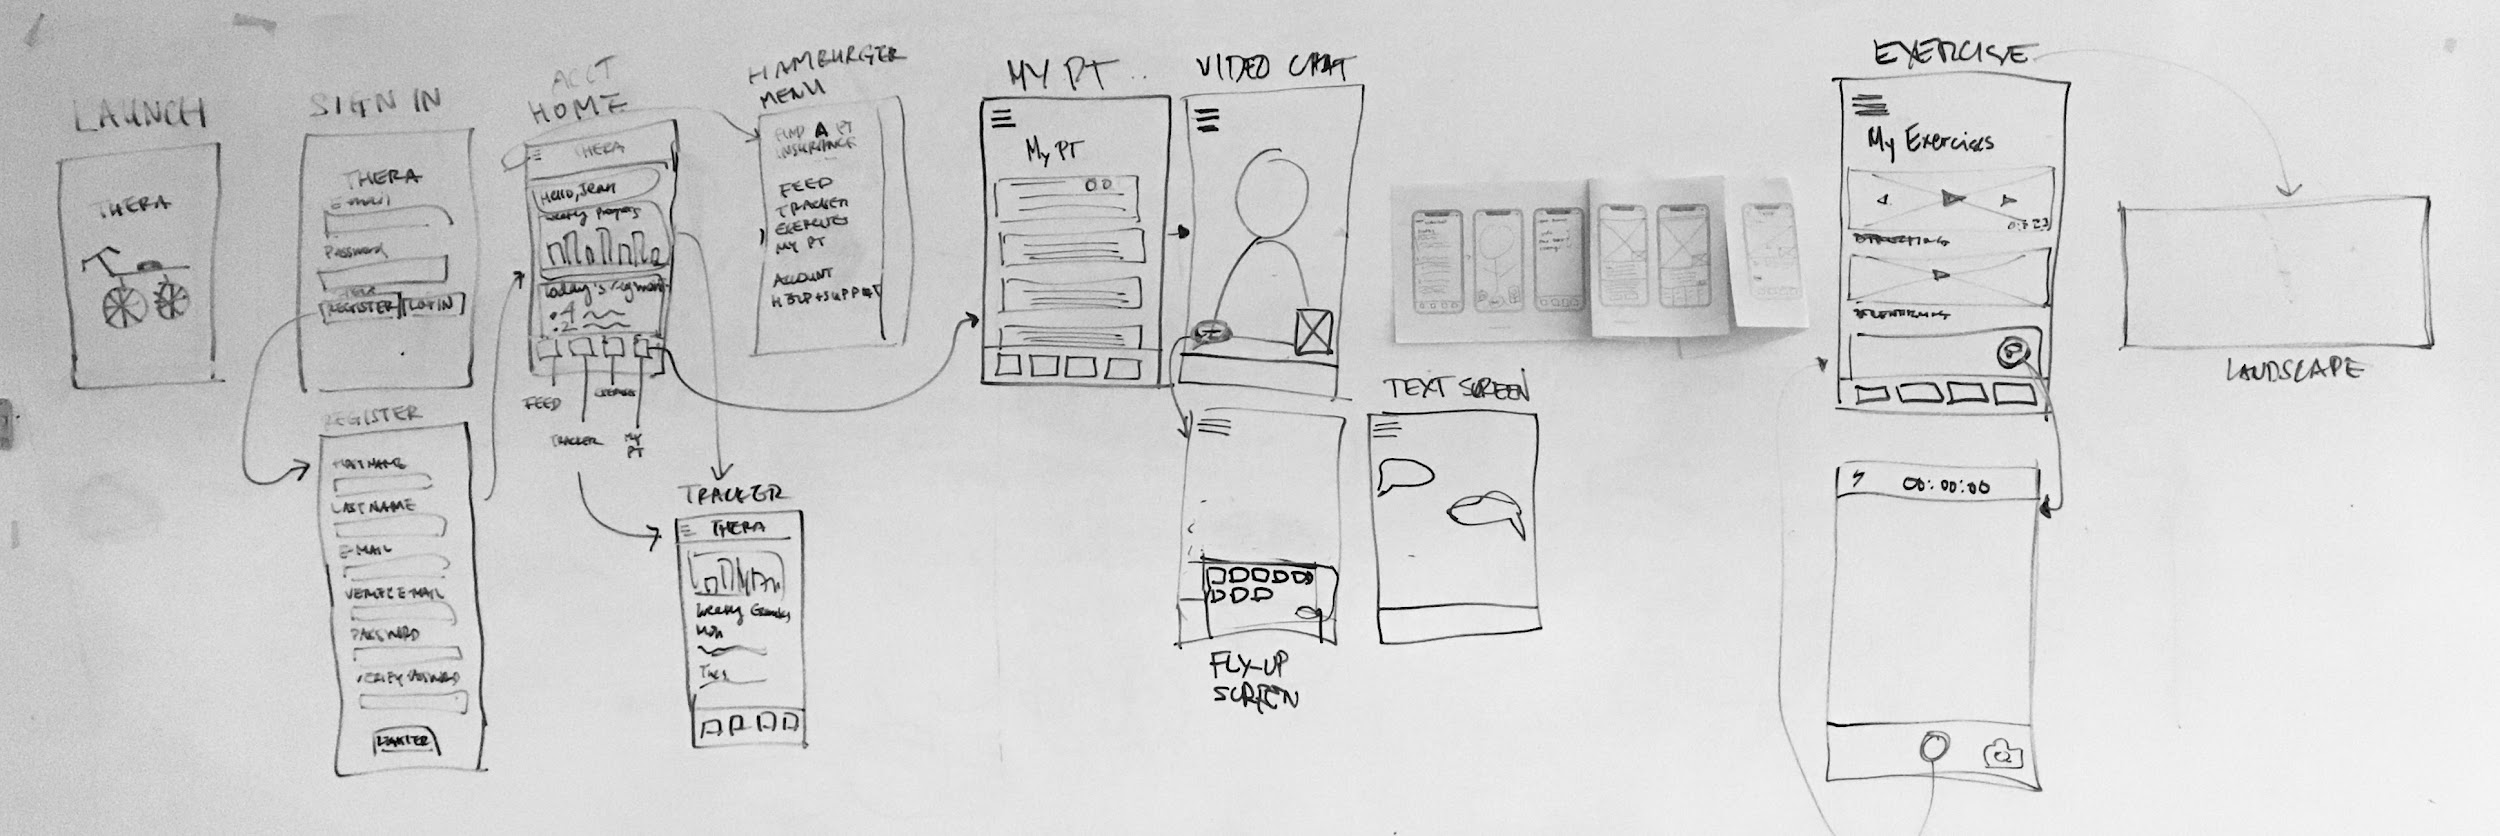 LAUNCH
THERA
SIGN IN
THERA
E-mail
Password
REGISTER
LOGIN
REGISTER
LAST NAME
E-MAIL
VERIFY E-MAIL
PASSWORD
REGISTER
ACCT
HOME
THERA
Hello, Jean
Weekly Progress
Today's regimen
4
2
FEED
TRACKER
MY
PT
HAMBURGER
MENU
FIND A PT
INSURANCE
FEED
TRACKER
EXERCISES
MY PT
ACCOUNT
HELP + SUPPORT
TRACKER
THERA
Weekly
Mon
Tues
MY PT
My PT
VIDEO CHAT
FLY-UP
SCREEN
TEXT SCREEN
EXERCISE
My Exercises
0:23
00:00:00
LANDSCAPE